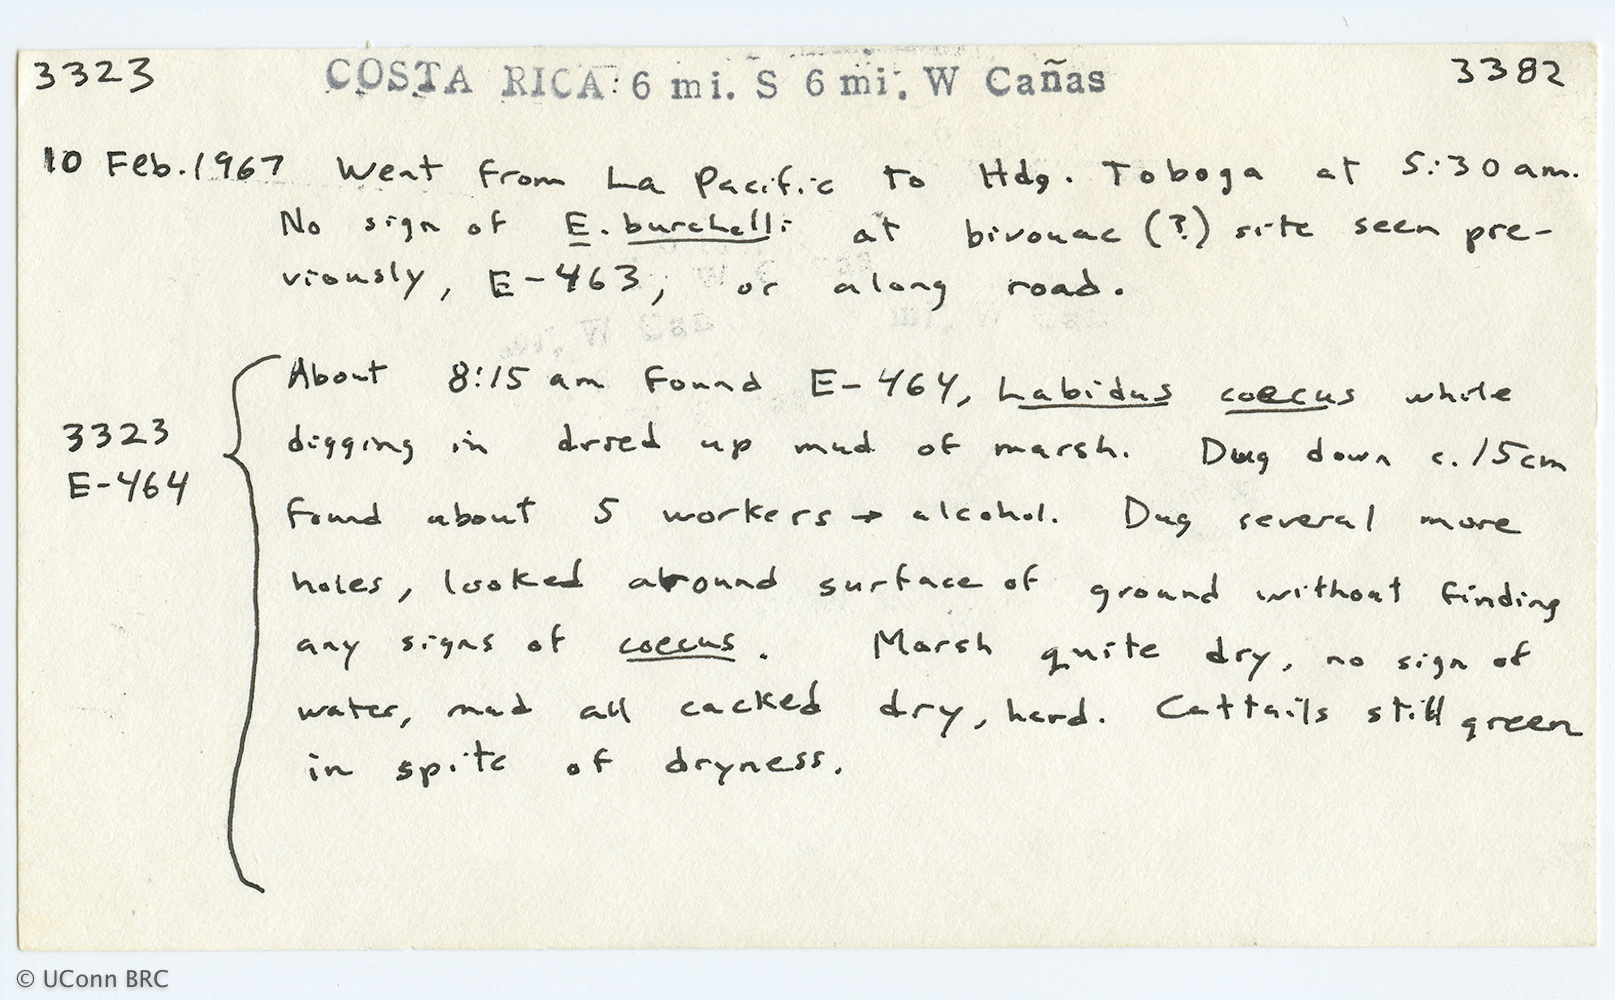 3323 COSTA RICA: 6 mi. S 6 mi. W Cañas 3382
10 Feb. 1967 Went from La Pacific to Hdg. Toboga at 5:30 am.
No sign of E. burchelli at bivouac (?) site seen pre-
viously, E-463, or along road.
About 8:15 am found E-464, Labidus coecus while
digging in dried up mud of marsh. Dug down c. 15cm
3323
E-464
found about 5 workers → alcohol. Dug several more
holes, looked around surface of ground without finding
any signs of coecus. Marsh quite dry, no sign of
water, mud all cacked dry, hard. Cattails still green
in spite of dryness.
© UConn BRC